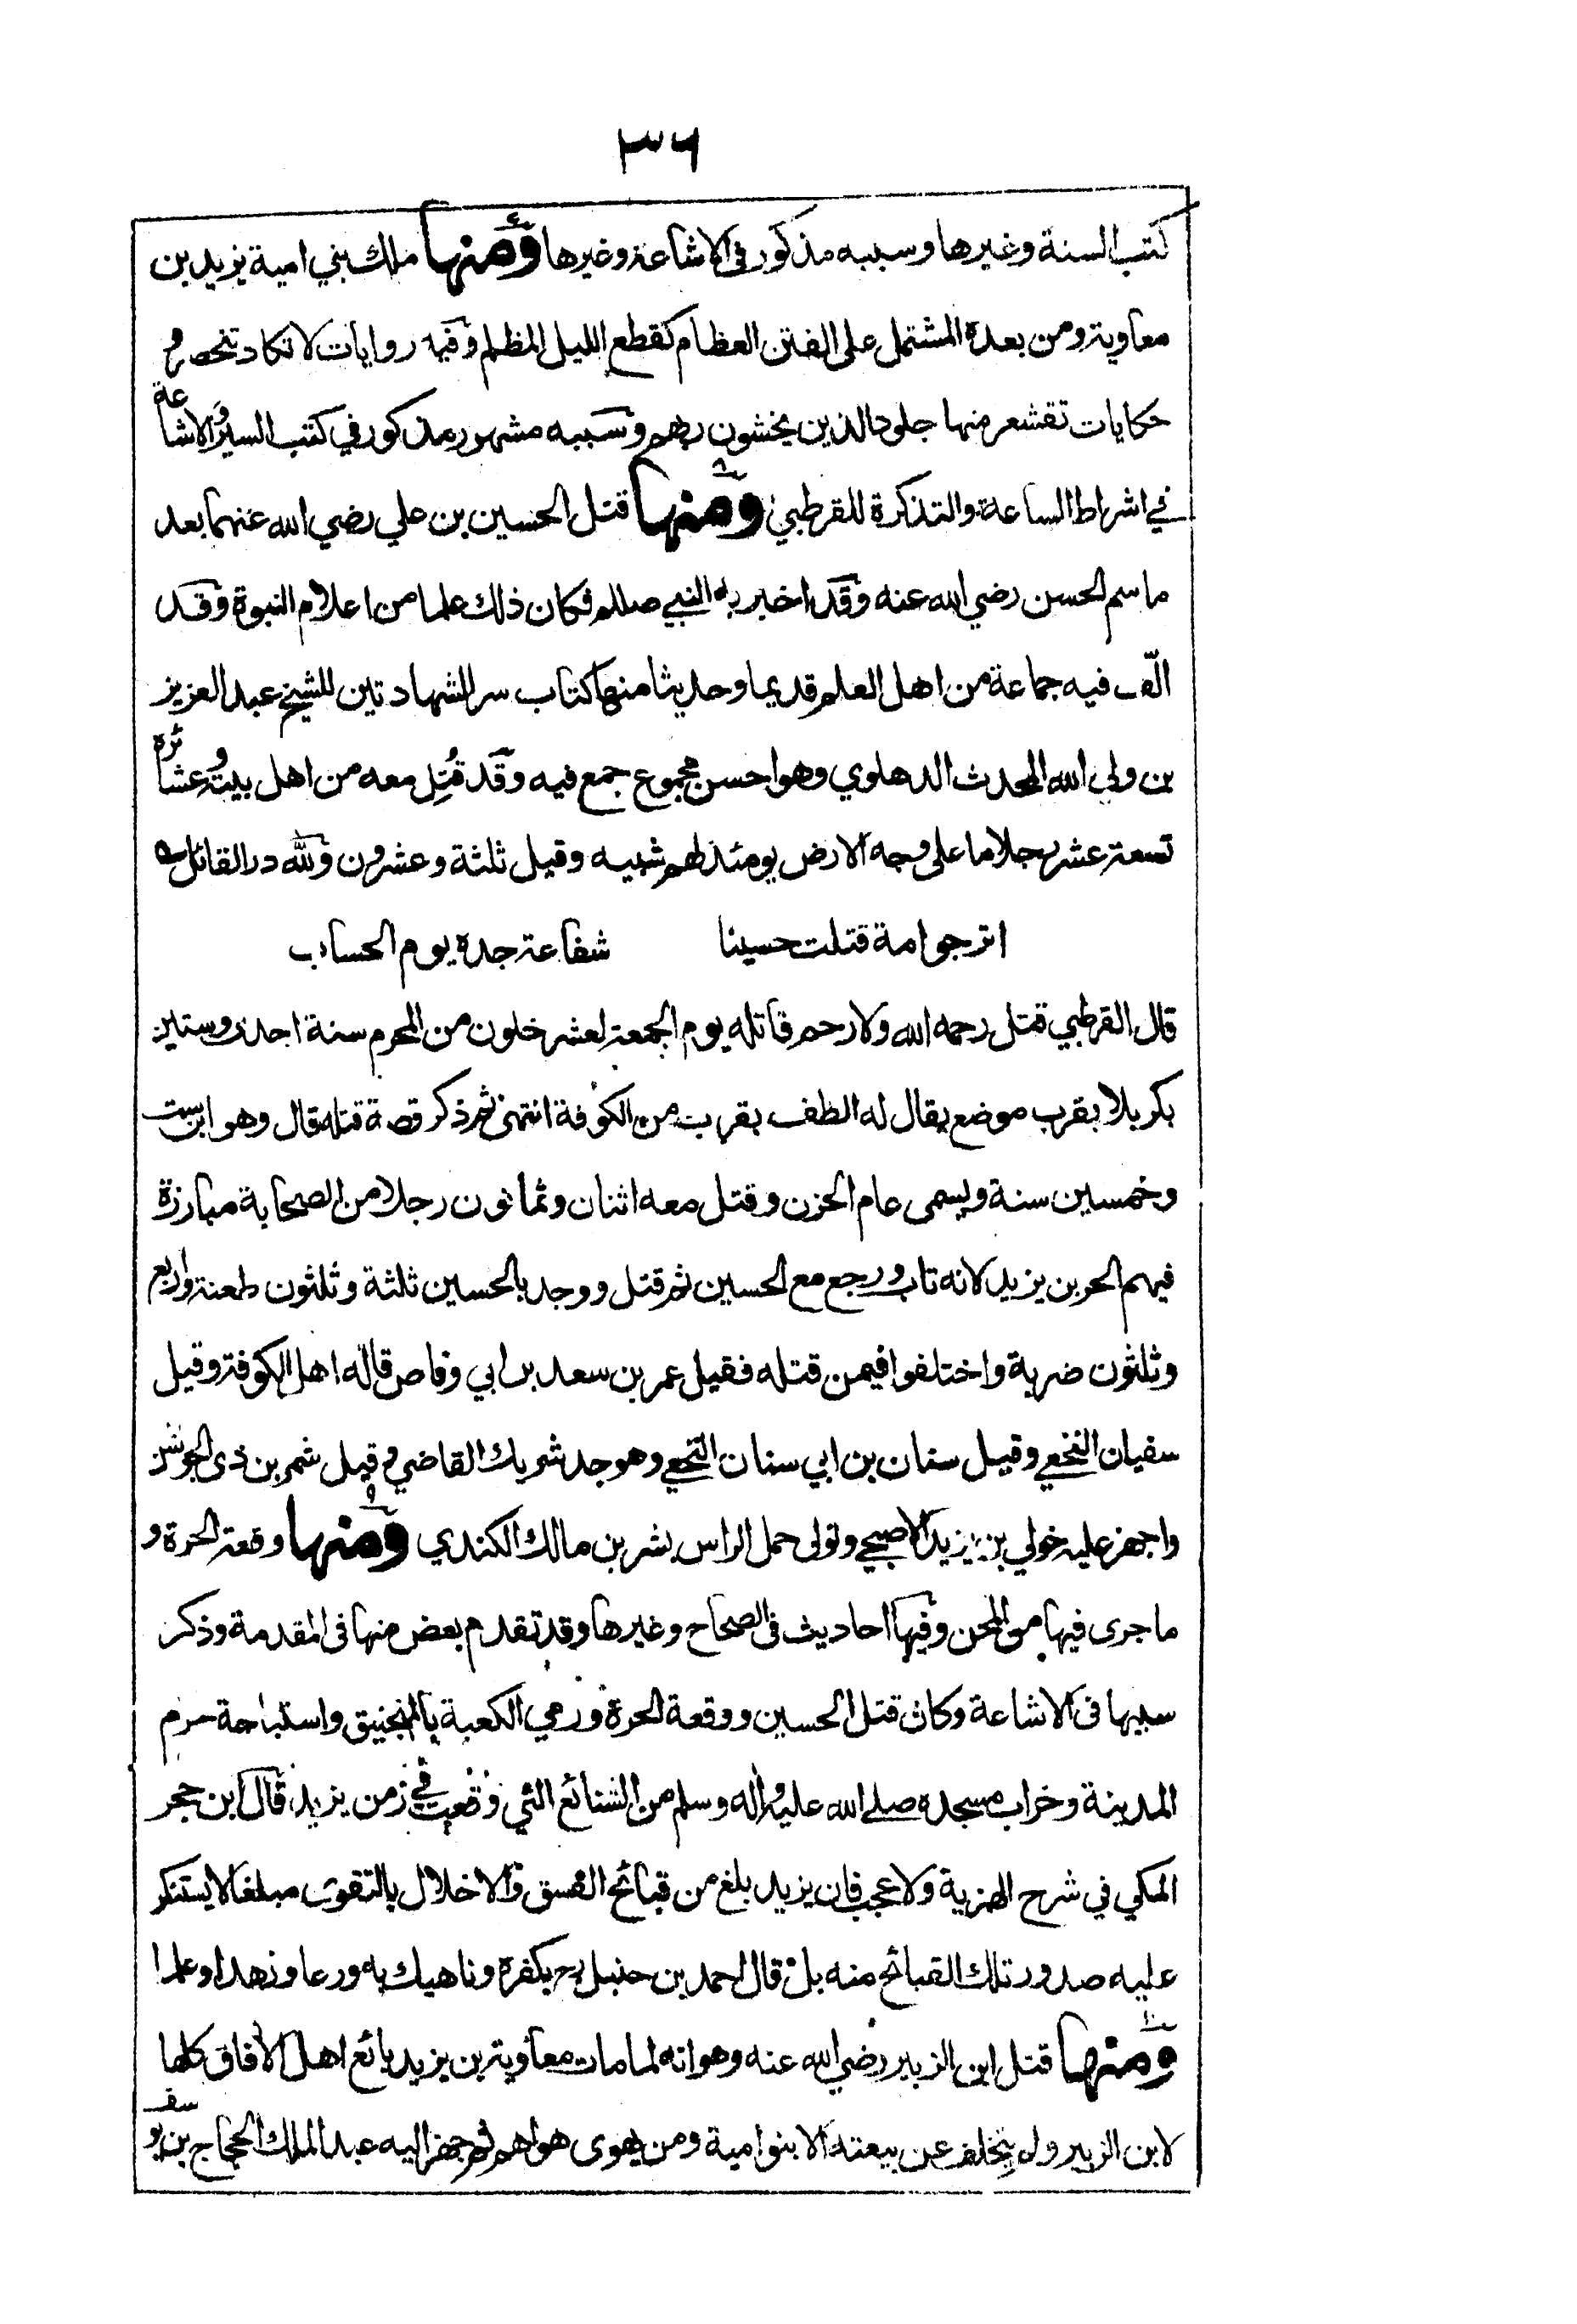 ٣٦
كتب السنة وغيرها وسببه مذكور فى الاشاعة وغيرها ومنها ملك بني امية يزيد بن
معاوية ومن بعده المشتمل على الفتن العظام كقطع الليل المظلم وفيه روايات لا تكاد تنحصر و
حكايات تقشعر منها جلود الذين يخشون ربهم وسببه مشهور مذكور في كتب السير والاشاعة
في اشراط الساعة والتذكرة للقرطبي ومنها قتل الحسين بن علي رضي الله عنهما بعد
ما سم الحسن رضي الله عنه وقد اخبر به النبي صللم فكان ذلك علما من اعلام النبوة وقد
الّف فيه جماعة من اهل العلم قديما وحديثا منها كتاب سر الشهادتين للشيخ عبد العزيز
بن ولي الله المحدث الدهلوي وهو احسن مجموع جمع فيه وقد قُتِل معه من اهل بيته وعشائره
تسعة عشر رجلا ما على وجه الارض يومئذ لهم شبيه وقيل ثلثة وعشرون ولله در القائل
اترجو امة قتلت حسينا شفاعة جده يوم الحساب
قال القرطبي قتل رحمه الله ولا رحم قاتله يوم الجمعة لعشر خلون من المحرم سنة احدى وستين
بكربلا بقرب موضع يقال له الطف بقرب من الكوفة انتهى ثم ذكر قصة قتله قال وهو ابن ست
وخمسين سنة ويسمى عام الحزن وقتل معه اثنان وثمانون رجلا من الصحابة مبارزة
فيهم الحر بن يزيد لانه تاب ورجع مع الحسين ثم قتل ووجد بالحسين ثلثة وثلثون طعنة واربع
وثلثون ضربة واختلفوا فيمن قتله فقيل عمر بن سعد بن ابي وقاص قاله اهل الكوفة وقيل
سفيان النخعي وقيل سنان بن ابي سنان النخعي وهو جد شريك القاضي وقيل شمر بن ذى الجوشن
واجهز عليه خولي بن يزيد الاصبحي وتولى حمل الراس بشر بن مالك الكندي ومنها وقعة الحرة و
ما جرى فيها من المحن وفيها احاديث فى الصحاح وغيرها وقد تقدم بعض منها فى المقدمة وذكر
سببها فى الاشاعة وكان قتل الحسين ووقعة الحرة ورمي الكعبة بالمنجنيق واستباحة حرم
المدينة وخراب مسجده صلى الله عليه واله وسلم من الشنائع التي وقعت في زمن يزيد قال ابن حجر
المكي في شرح الهمزية ولا عجب فان يزيد بلغ من قبائح الفسق والاخلال بالتقوى مبلغا لا يستنكر
عليه صدور تلك القبائح منه بل قال احمد بن حنبل رح بكفره وناهيك به ورعا وزهدا وعلما
ومنها قتل ابن الزبير رضي الله عنه وهو انه لما مات معاوية بن يزيد بائع اهل الافاق كلها
لابن الزبير ولم يتخلف عن بيعته الا بنو امية ومن يهوى هواهم ثم جهز اليه عبد الملك الحجاج بن يوسف